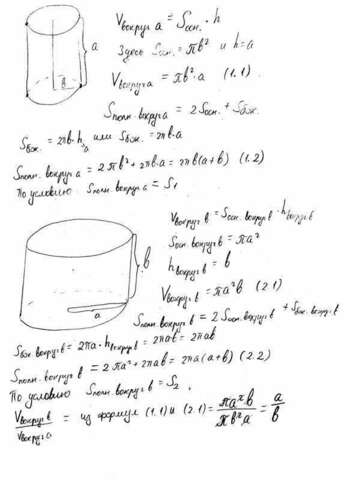 Vвокруг a = Sосн. · h
Здесь Sосн. = πb² и h=a
a
b
Vвокруг a = πb²·a (1.1)
Sполн. вокруг a = 2Sосн. + Sбж.
Sбж. = 2πb·h или Sбж. = 2πb·a
Sполн. вокруг a = 2πb² + 2πb·a = 2πb(a+b) (1.2)
По условию Sполн. вокруг a = S1
Vвокруг b = Sосн. вокруг b · hвокруг b
Sосн. вокруг b = πa²
b
hвокруг b = b
Vвокруг b = πa²b (2.1)
a
Sполн. вокруг b = 2Sосн. вокруг b + Sбж. вокруг b
Sбж вокруг b = 2πa · hвокруг b = 2πab = 2πab
Sполн. вокруг b = 2πa² + 2πab = 2πa(a+b) (2.2)
По условию Sполн. вокруг b = S2
Vвокруг b / Vвокруг a = из формул (1.1) и (2.1) = πa²b / πb²a = a / b